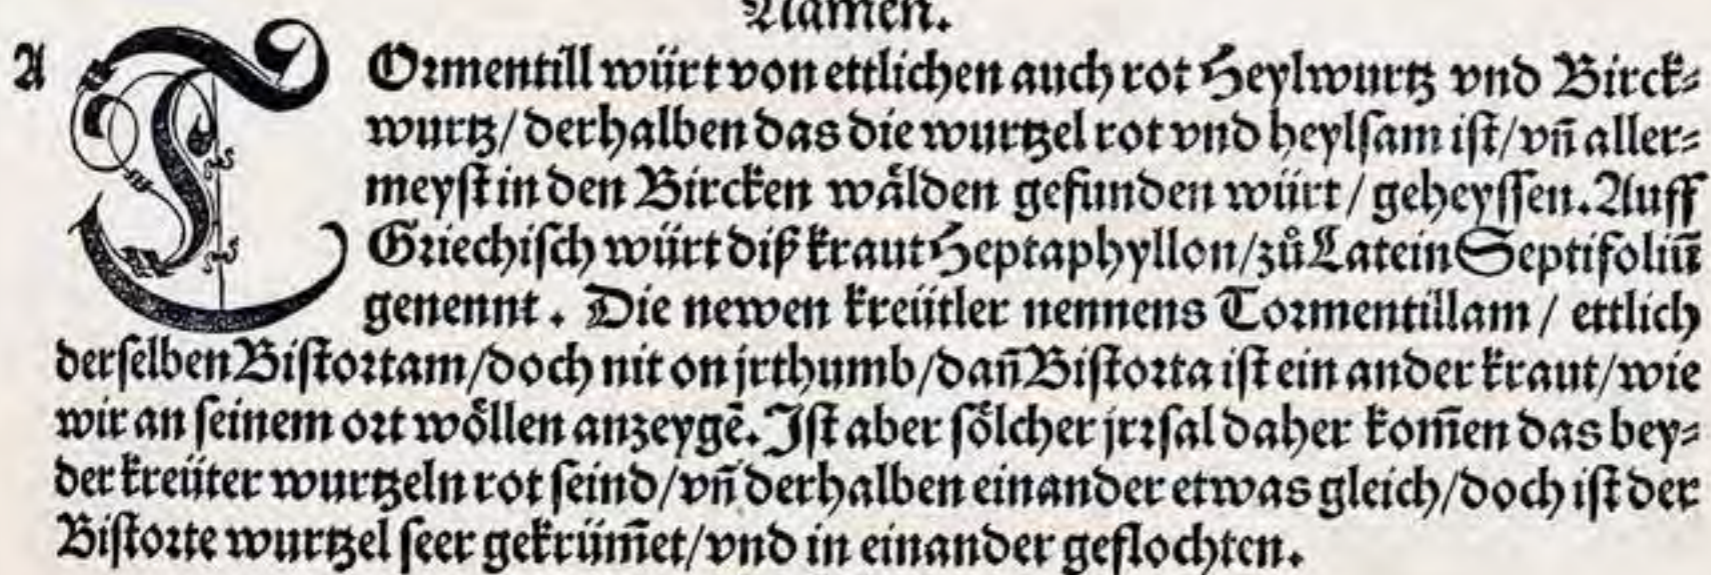 Namen.
A TOrmentill würt von ettlichen auch rot Heylwurtz vnd Birck⸗
wurtz/ derhalben das die wurtzel rot vnd heylſam iſt/ vñ aller⸗
meyſt in den Bircken waͤlden gefunden würt/ geheyſſen. Auff
Griechiſch würt diß kraut Heptaphyllon/ zuͦ Latein Septifoliū
genennt. Die newen kreütler nennens Tormentillam/ ettlich
derſelben Biſtortam/ doch nit on jrthumb/ dañ Biſtorta iſt ein ander kraut/ wie
wir an ſeinem ort woͤllen anzeygē. Iſt aber ſoͤlcher jrrſal daher kom̄en das bey⸗
der kreüter wurtzeln rot ſeind/ vñ derhalben einander etwas gleich/ doch iſt der
Biſtorte wurtzel ſeer gekrüm̄et/ vnd in einander geflochten.